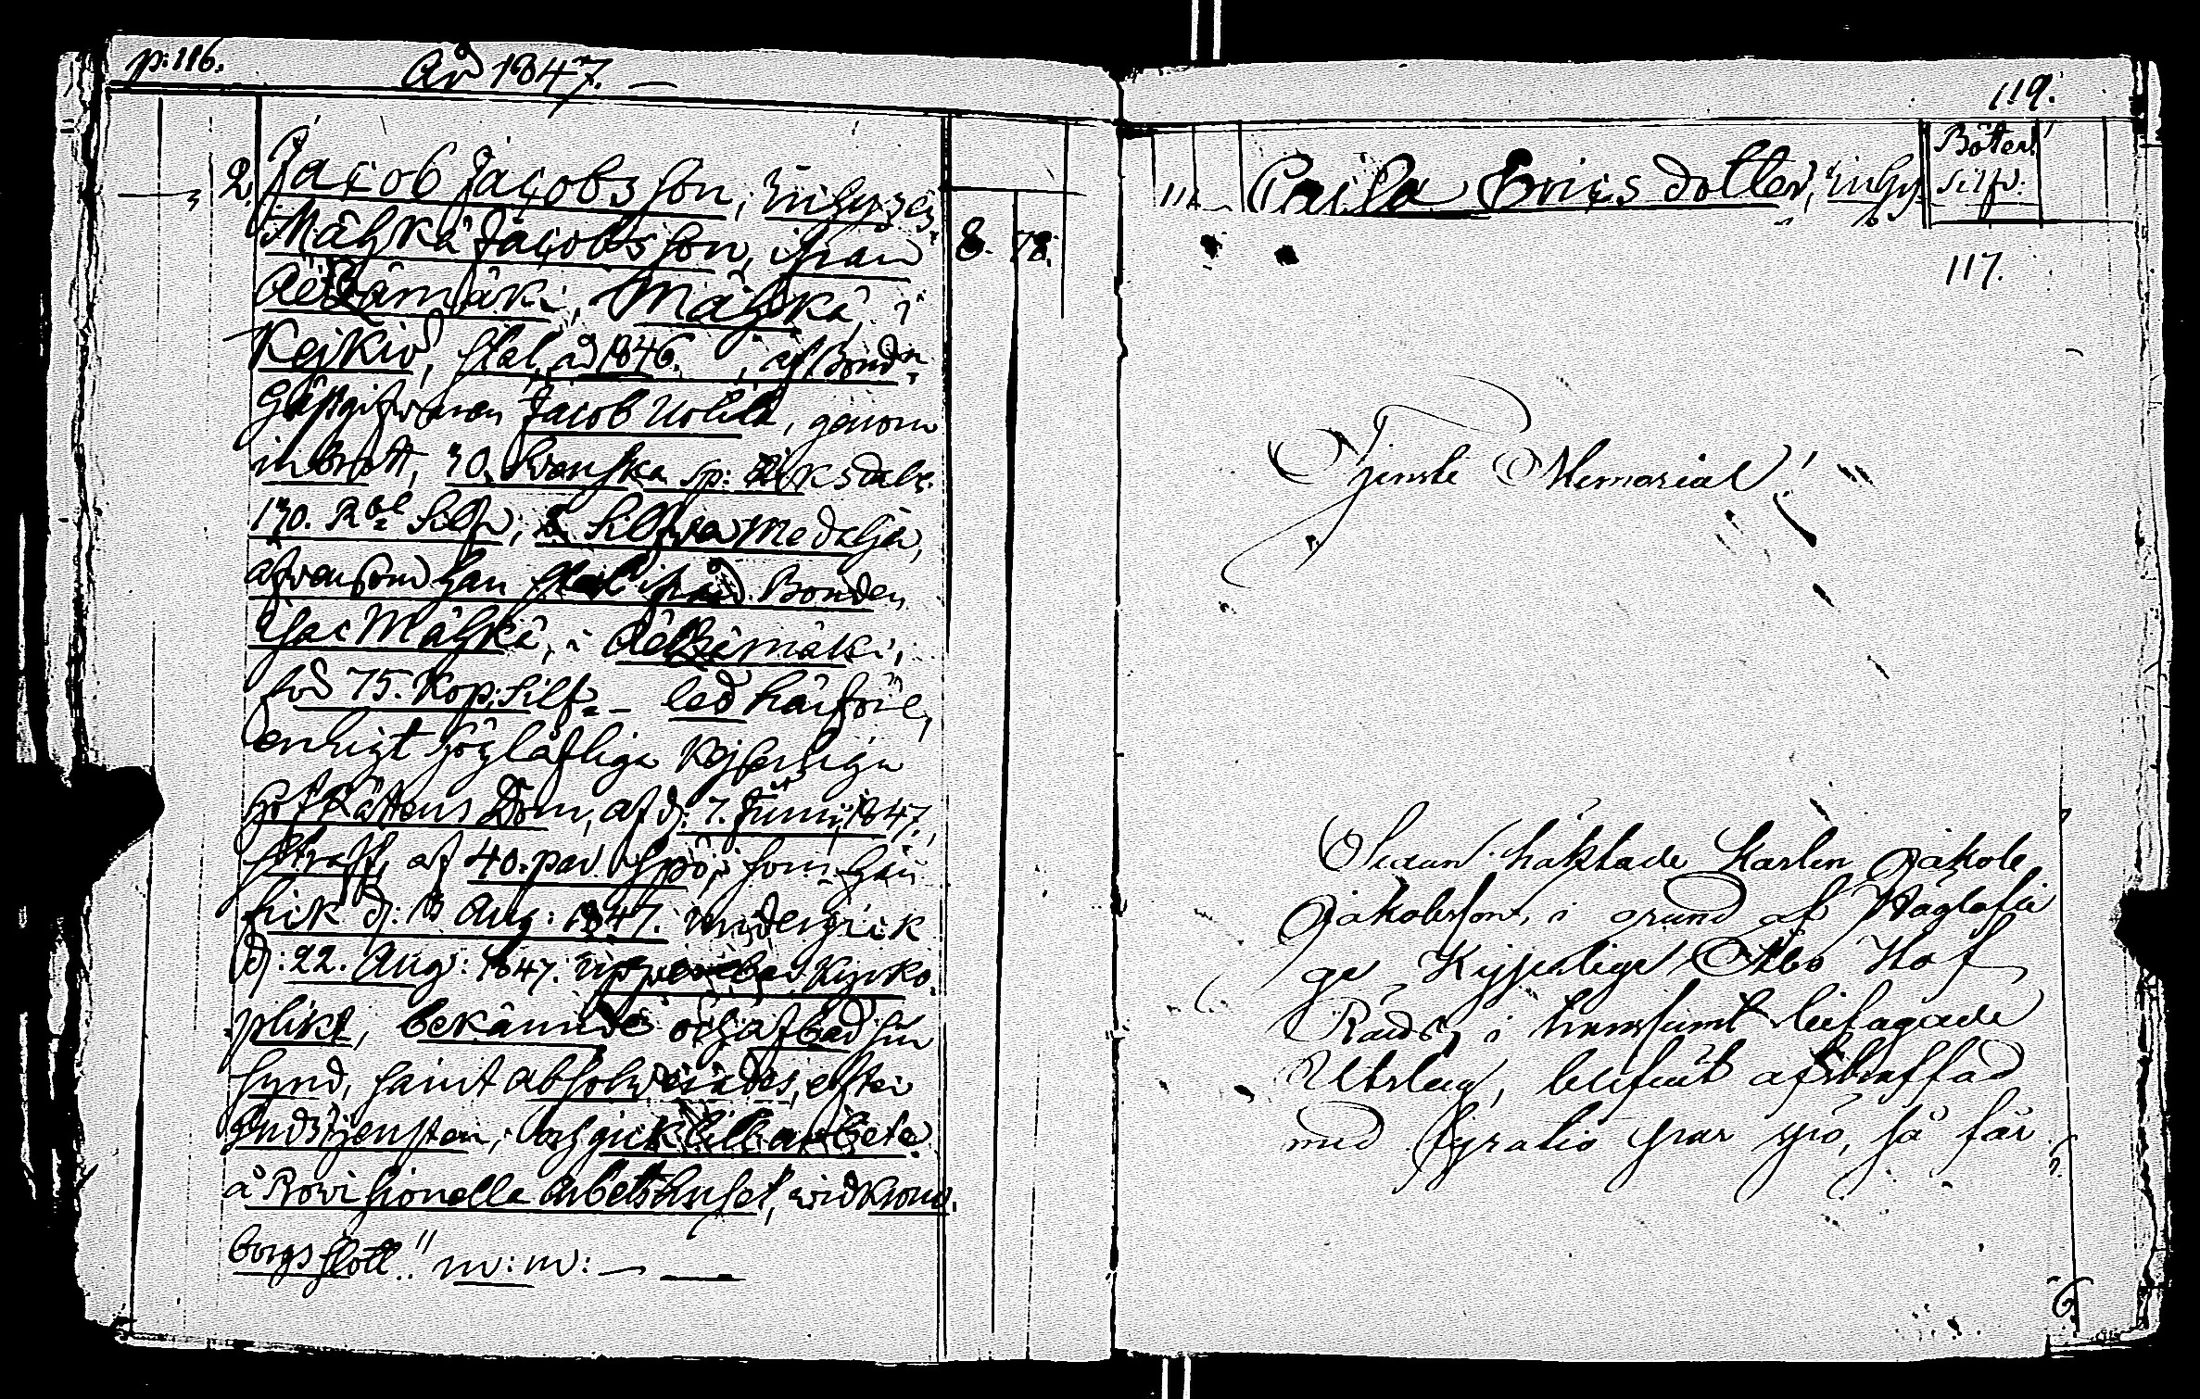 p: 116.
År 1847.
2. Jacob Jacobsson, Inhyses
Mähkä Jacobsson, ifrån
Mähkä, i
Kejkiö, stal, åd 1846. , af Bondn
Gästgifvaren Jacob Uotila, genom
inbrott, 30. Svenska sp: Riksdalr.
130. Rbl Silfr, 2 Silfver Medaljer,
äfvensom han stal ifrån Bonden
Isac Mähkä, i
för 75. Kop: Silfr – led härföre,
enligt Högloflige Kejserliga
Hof Rättens Dom, af d: 7. Junii, 1847,
straff, af 40. par spö, som han
fick d: 18 Aug: 1847. undergick
d: 22. Aug: 1847. uppenbar Kyrko-
plikt, bekännde och afbad sin
synd, samt absolverades, efter
Gudstjensten, och gick till arbete
å Provisionella Arbetshuset, vid Krono-
borgs slott." m: m: —
8. 78.
119.
Böter!
Silfr:
116 Caisa Erics dotter, Inhy
117.
Tjenste Memorial!
Sedan häktade Karlen Jakob
Jakobsson, i grund af Höglofli
ga Kejserliga Åbo Hof
Rätts, i transsumt bifogade
Utslag, blifvit afstraffad
med fyratio par spö, så får
6